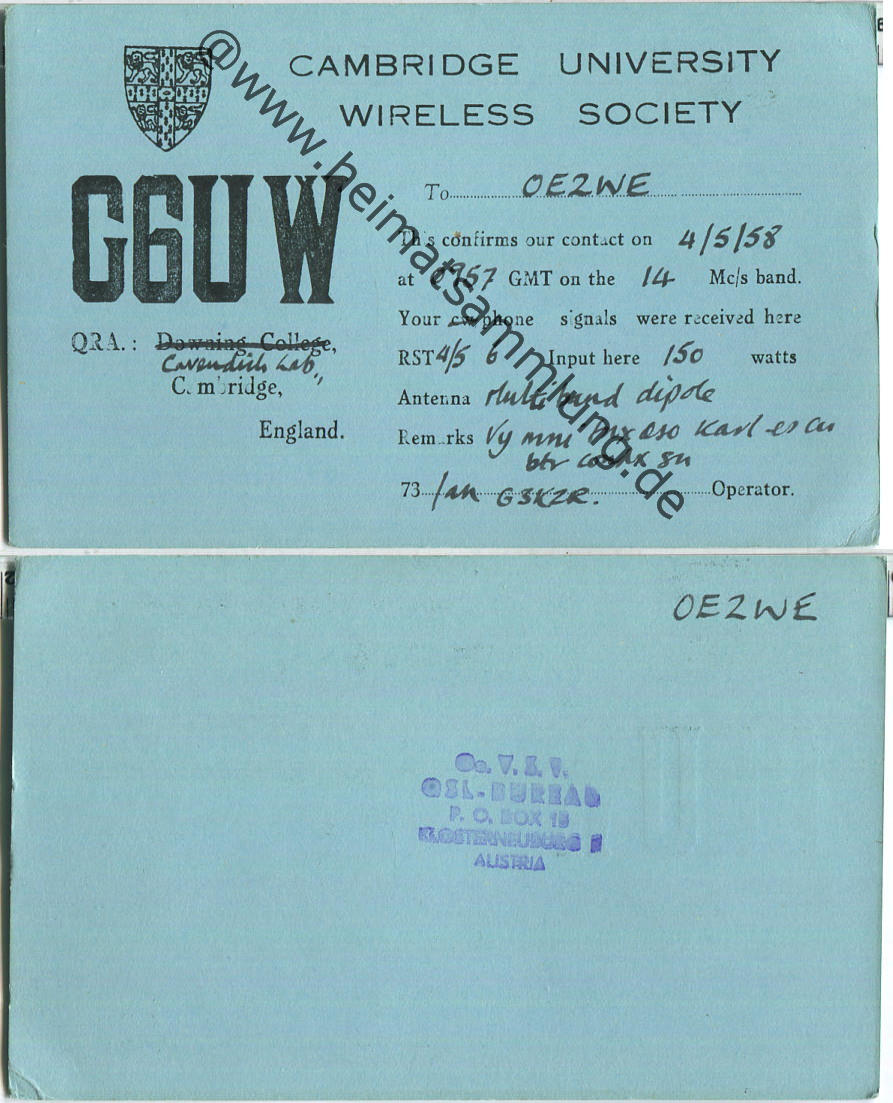 CAMBRIDGE UNIVERSITY
WIRELESS SOCIETY
G6UW
To OE2WE
This confirms our contact on 4/5/58
at 0957 GMT on the 14 Mc/s band.
Your cw/phone signals were received here
RST 4/5 6 Input here 150 watts
Antenna Multiband dipole
Remarks Vy mni tnx QSO Karl es cu
btr condx sn
73 Ian G3KZR. Operator.
QRA.: Downing College,
Cavendish Lab,
Cambridge,
England.
@www.heimatsammlung.de
OE2WE
Oe. V. S. V.
QSL-BUREAU
P. O. BOX
KLOSTERNEUBURG
AUSTRIA